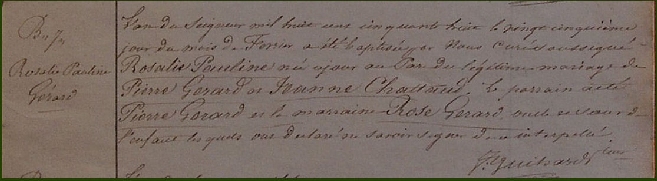 Bn 7e
Rosalie Pauline
Gérard
L'an du Seigneur mil huit cent cinquante trois le vingt cinquième
jour du mois de Fevrier a été baptisée par Nous curé soussigné
Rosalie Pauline née ce jour du légitime mariage de
Pierre Gerard et Jeanne le parrain a été
Pierre Gerard et la marraine Rose Gerard, oncle et sœur de
l'enfant lesquels ont déclaré ne savoir signer de ce interpellé